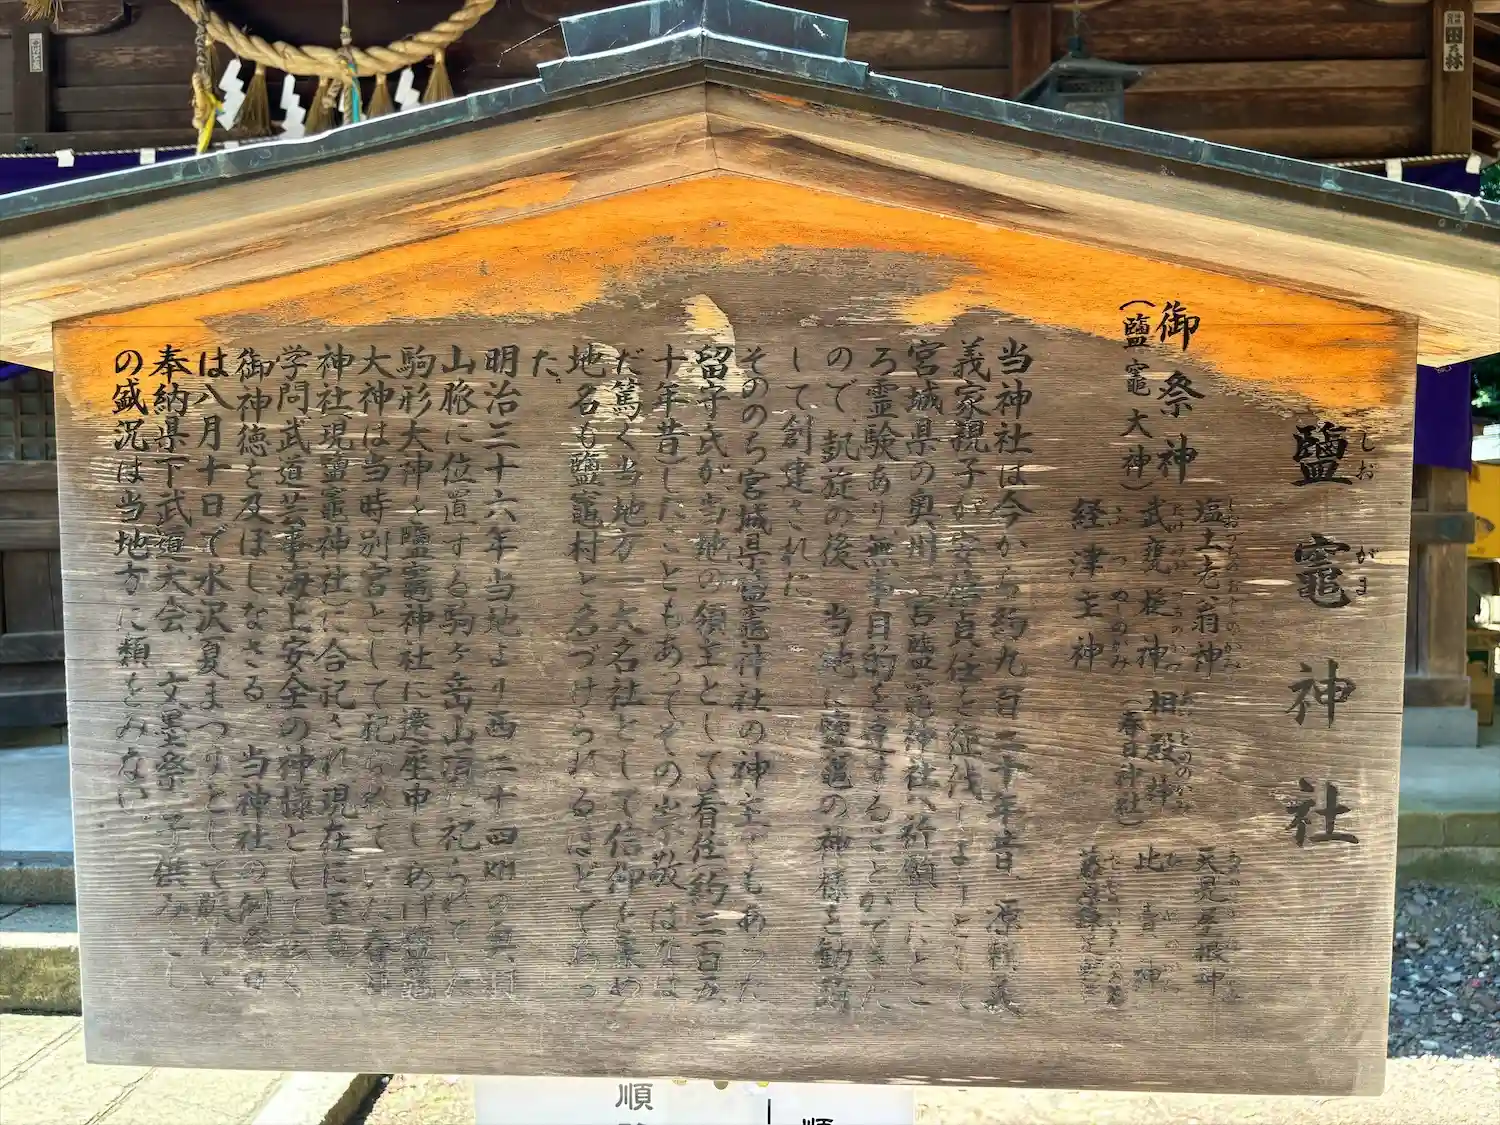 鹽竈神社
しおがま
御祭神
(鹽竈大神)
塩土老翁神
しおつちのおじのかみ
武甕槌神
経津主神
ふつぬしのかみ
相殿神
あいどののかみ
(春日神社)
天児屋根神
比売神
当神社は今から約九百二十年昔、源頼義
義家親子が安倍貞任を征伐しようとし
宮城県の奥州一宮鹽竈神社へ祈願したとこ
ろ霊験あり、無事目的を達することができた
ので、凱旋の後、当地に鹽竈の神様を勧請
して創建された。
そののち宮城県鹽竈神社の神主でもあった
留守氏が当地の領主として着住(約三百五
十年昔)したこともあってその崇敬はなは
だ篤く当地方一大名社として信仰を集め
地名も鹽竈村と名づけられるほどであっ
た。
明治三十六年当地より西二十四粁の奥羽
山脈に位置する駒ヶ岳山頂に祀られていた
駒形大神を鹽竈神社に遷座申しあげ鹽竈
大神は当時別宮として祀られていた春日
神社(現鹽竈神社)に合祀され現在に至る。
学問武道芸事海上安全の神様として広く
御神徳を及ぼしなさる。当神社の例祭日
は八月十日で水沢夏まつりとして賑わい、
奉納県下武道大会、文墨祭、子供みこし
の盛況は当地方に類をみない。
順
順